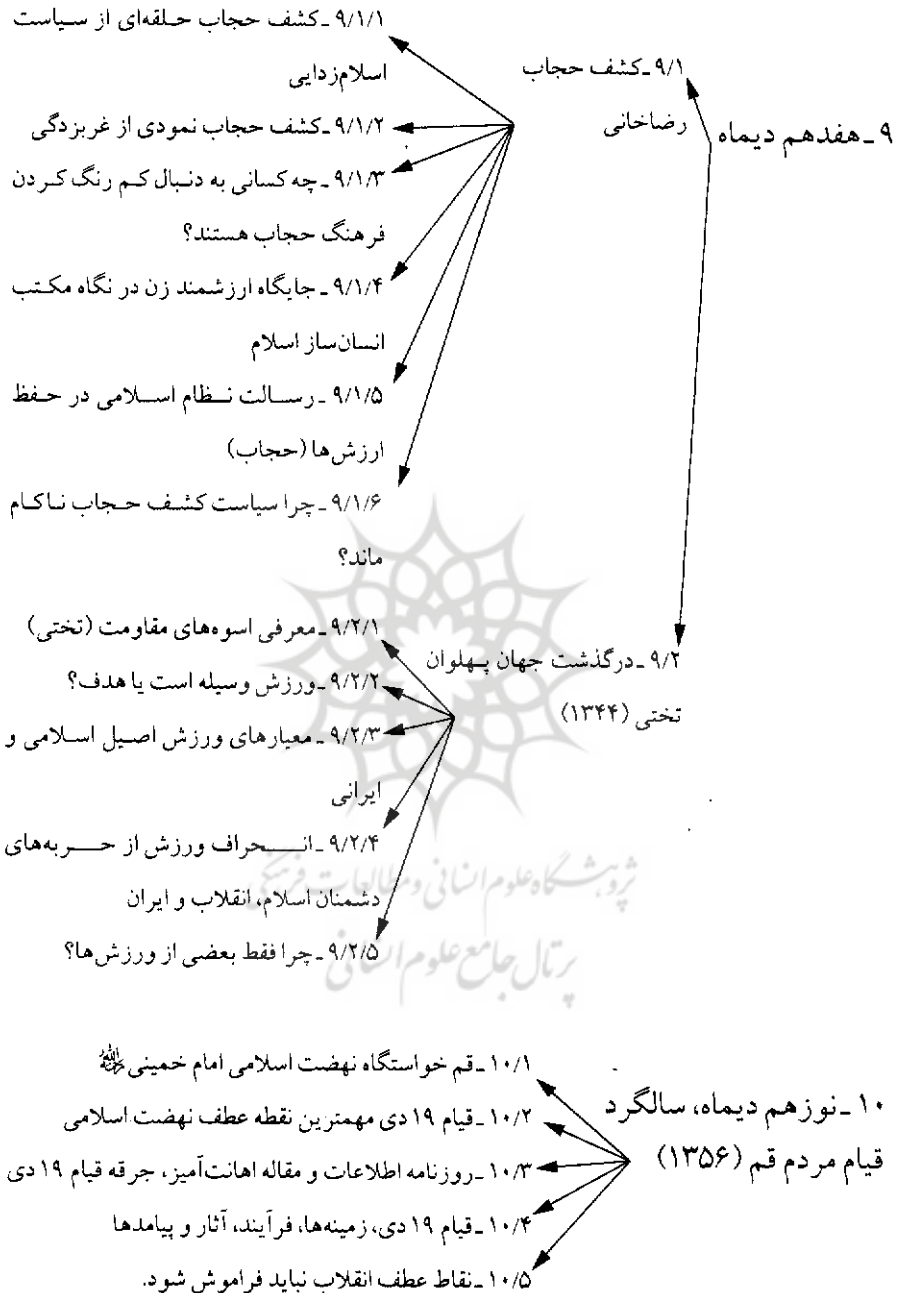 ۹ـ هفدهم دیماه
۹/۱ـ کشف حجاب
رضاخانی
۹/۱/۱ ـ کشف حجاب حلقه‌ای از سیاست
اسلام‌زدایی
۹/۱/۲ ـ کشف حجاب نمودی از غربزدگی
۹/۱/۳ ـ چه کسانی به دنبال کم رنگ کردن
فرهنگ حجاب هستند؟
۹/۱/۴ ـ جایگاه ارزشمند زن در نگاه مکتب
انسان‌ساز اسلام
۹/۱/۵ ـ رسالت نظام اسلامی در حفظ
ارزش‌ها (حجاب)
۹/۱/۶ ـ چرا سیاست کشف حجاب ناکام
ماند؟
۹/۲ ـ درگذشت جهان پهلوان
تختی (۱۳۴۴)
۹/۲/۱ ـ معرفی اسوه‌های مقاومت (تختی)
۹/۲/۲ ـ ورزش وسیله است یا هدف؟
۹/۲/۳ ـ معیارهای ورزش اصیل اسلامی و
ایرانی
۹/۲/۴ ـ انحراف ورزش از حربه‌های
دشمنان اسلام، انقلاب و ایران
۹/۲/۵ ـ چرا فقط بعضی از ورزش‌ها؟
پژوهشگاه علوم انسانی و مطالعات فرهنگی
پرتال جامع علوم انسانی
۱۰ ـ نوزهم دیماه، سالگرد
قیام مردم قم (۱۳۵۶)
۱۰/۱ ـ قم خواستگاه نهضت اسلامی امام خمینی ره
۱۰/۲ ـ قیام ۱۹ دی مهمترین نقطه عطف نهضت اسلامی
۱۰/۳ ـ روزنامه اطلاعات و مقاله اهانت‌آمیز، جرقه قیام ۱۹ دی
۱۰/۴ ـ قیام ۱۹ دی، زمینه‌ها، فرآیند، آثار و پیامدها
۱۰/۵ ـ نقاط عطف انقلاب نباید فراموش شود.